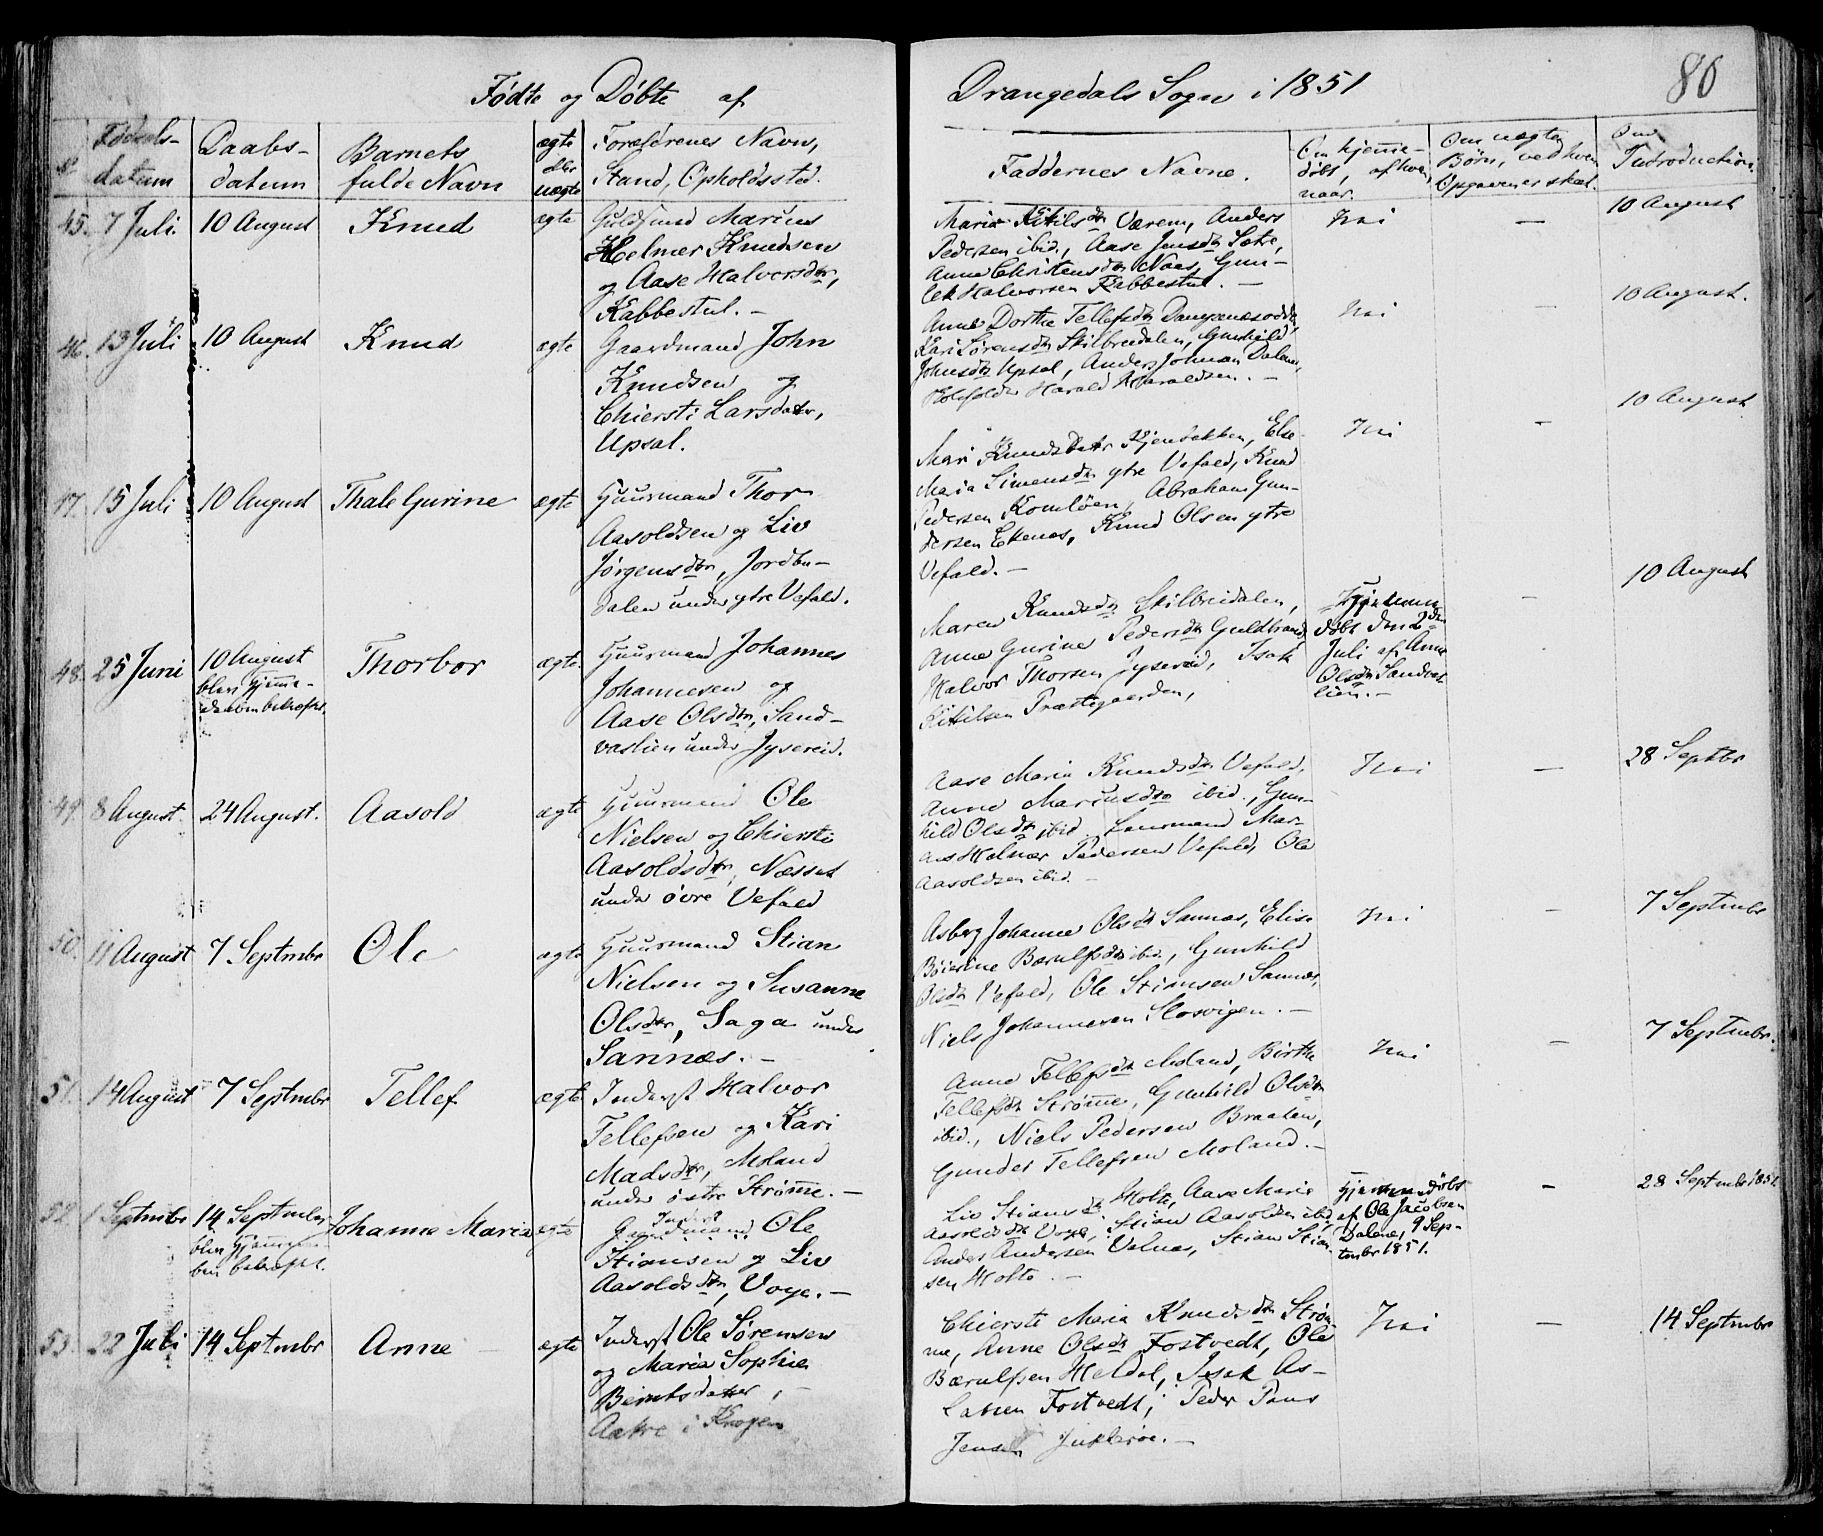 Fødte og Døbte af
Drangedals Sogn i 1851
86
Fødsels-
datum
Daabs-
datum
Barnets
fulde Navn
ægte
eller
uægte
Forældrenes Navn,
Stand, Opholdssted.
Faddernes Navne.
Om hjemme-
døbt, af hvem,
naar.
Om uægte
Børn, ved hvem
Opgaven er skeet.
Om
Introduction.
45. 7 Juli. 10 August Knud ægte Guldsmed Marius
Helmer Knudsen
og Aase Halvorsdtr,
Kabbestul. –
Maria Kittilsdtr Værem, Anders
Pedersen ibid., Aase Jensdtr Sætre,
Anne Christensdtr Naas, Gun-
lek Halvorsen Kabbestul. –
Nei
–
10 August
46. 13 Juli 10 August Knud ægte Gaardmand John
Knudsen og
Chiersti Larsdatr,
Upsal.
Anne Dorthe Tellefsdtr
Kari Sørensdtr Skilbreidalen, Gunhild
Johnsdtr Upsal, Anders Johnsen Dalene,
Harald Haraldsen. –
Nei
–
10 August.
47. 15 Juli 10 August Thale Gurine ægte Huusmand Thor
Aasoldsen og Liv
Jørgensdtr, Jordbu-
dalen under ytre Vefald.
Mari Knudsdatr Kjenbekken, Else
Maria Simensdtr ytre Vefald, Knud
Pedersen Abraham Gun-
dersen Ekenæs, Knud Olsen ytre
Vefald. –
Nei
–
10 August
48. 25 Juni 10 August
blev hjemme-
daaben bekræftet.
Thorbor ægte Huusmand Johannes
Johannesen og
Aase Olsdtr, Sand-
vaslien under Jysereid.
Maren Knudsdtr Skilbreidalen,
Anne Gurine Pedersdtr Guldbrand
Halvor Thorsen Jysereid, Isak
Kittilsen Præstegaarden,
Hjemme-
døbt den 2den
Juli af Anne
Olsdtr Sandvas-
lien. –
–
10 August
49. 8 August 24 August. Aasold ægte Huusmand Ole
Nielsen og Chiersti
Aasoldsdtr, Næsset
under øvre Vefald
Aase Maria Knudsdtr Vefald,
Anne Mariusdtr ibid., Gun-
hild Olsdtr ibid. Mar-
ius Helmer Pedersen Vefald, Ole
Aasoldsen ibid. –
Nei
–
28 Septbr
50. 11 August 7 Septmbr Ole ægte Huusmand Stian
Nielsen og Susanne
Olsdtr, Saga under
Sannæs. –
Asberg Johanne Olsdtr Sannæs, Elise
Bærulfsdtr ibid., Gunhild
Olsdtr Vefald, Ole Stiansen Sannæs,
Niels Johannesen Slosvigen. –
Nei
–
7 Septmbr
51. 14 August 7 Septmbr Tellef ægte Inderst Halvor
Tellefsen og Kari
Madsdtr, Moland
under østre Strømme. –
Anne Tellefsdtr Moland, Birthe
Tellefsdtr Strømme, Gunhild Olsdtr
ibid., Niels Pedersen Braaten,
Gunder Tellefsen Moland. –
Nei
–
7 Septmbr.
52. 1 Septmbr 14 Septmber
blev hjemmedaa-
ben bekræftet.
Johanne Maria ægte Inderst
Gaardmand Ole
Stiansen og Liv
Aasoldsdtr, Voje. –
Liv Stiansdtr Holte, Aase Marie
Aasoldsdtr Voje, Stian Aasoldsen ibid,
Anders Andersen Stian Stian-
sen Holte. –
Hjemmedøbt
af Ole Jacobsen
Dalene, 9 Sep-
tmbr 1851.
–
28 Septmbr 1851
53. 22 Juli 14 Septmbr Anne ægte Inderst Ole Sørensen
og Maria Sophie
Berntsdatter, –
Aakre i Krogen
Chiersti Maria Knudsdtr Strøm-
me, Anne Olsdtr Fostvedt, Ole
Bærulfsen Heldal, Isak As-
laksen Fostvedt, Peder
Jensen
Nei
–
14 Septmbr